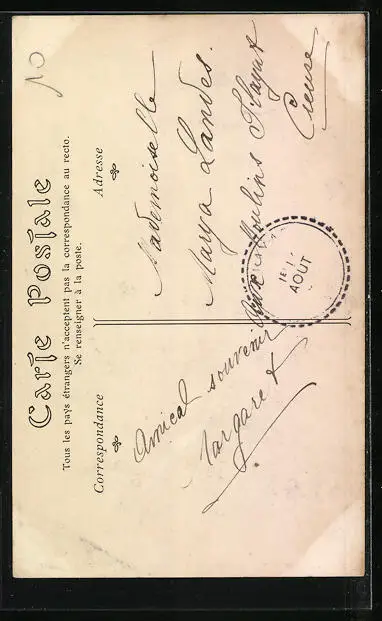 10
Carte Postale
Tous les pays étrangers n'acceptent pas la correspondance au recto.
Se renseigner à la poste.
Correspondance
Adresse
Amical souvenir
Margaret
Mademoiselle
Marya Landes.
Moulins
Creuse
AOUT